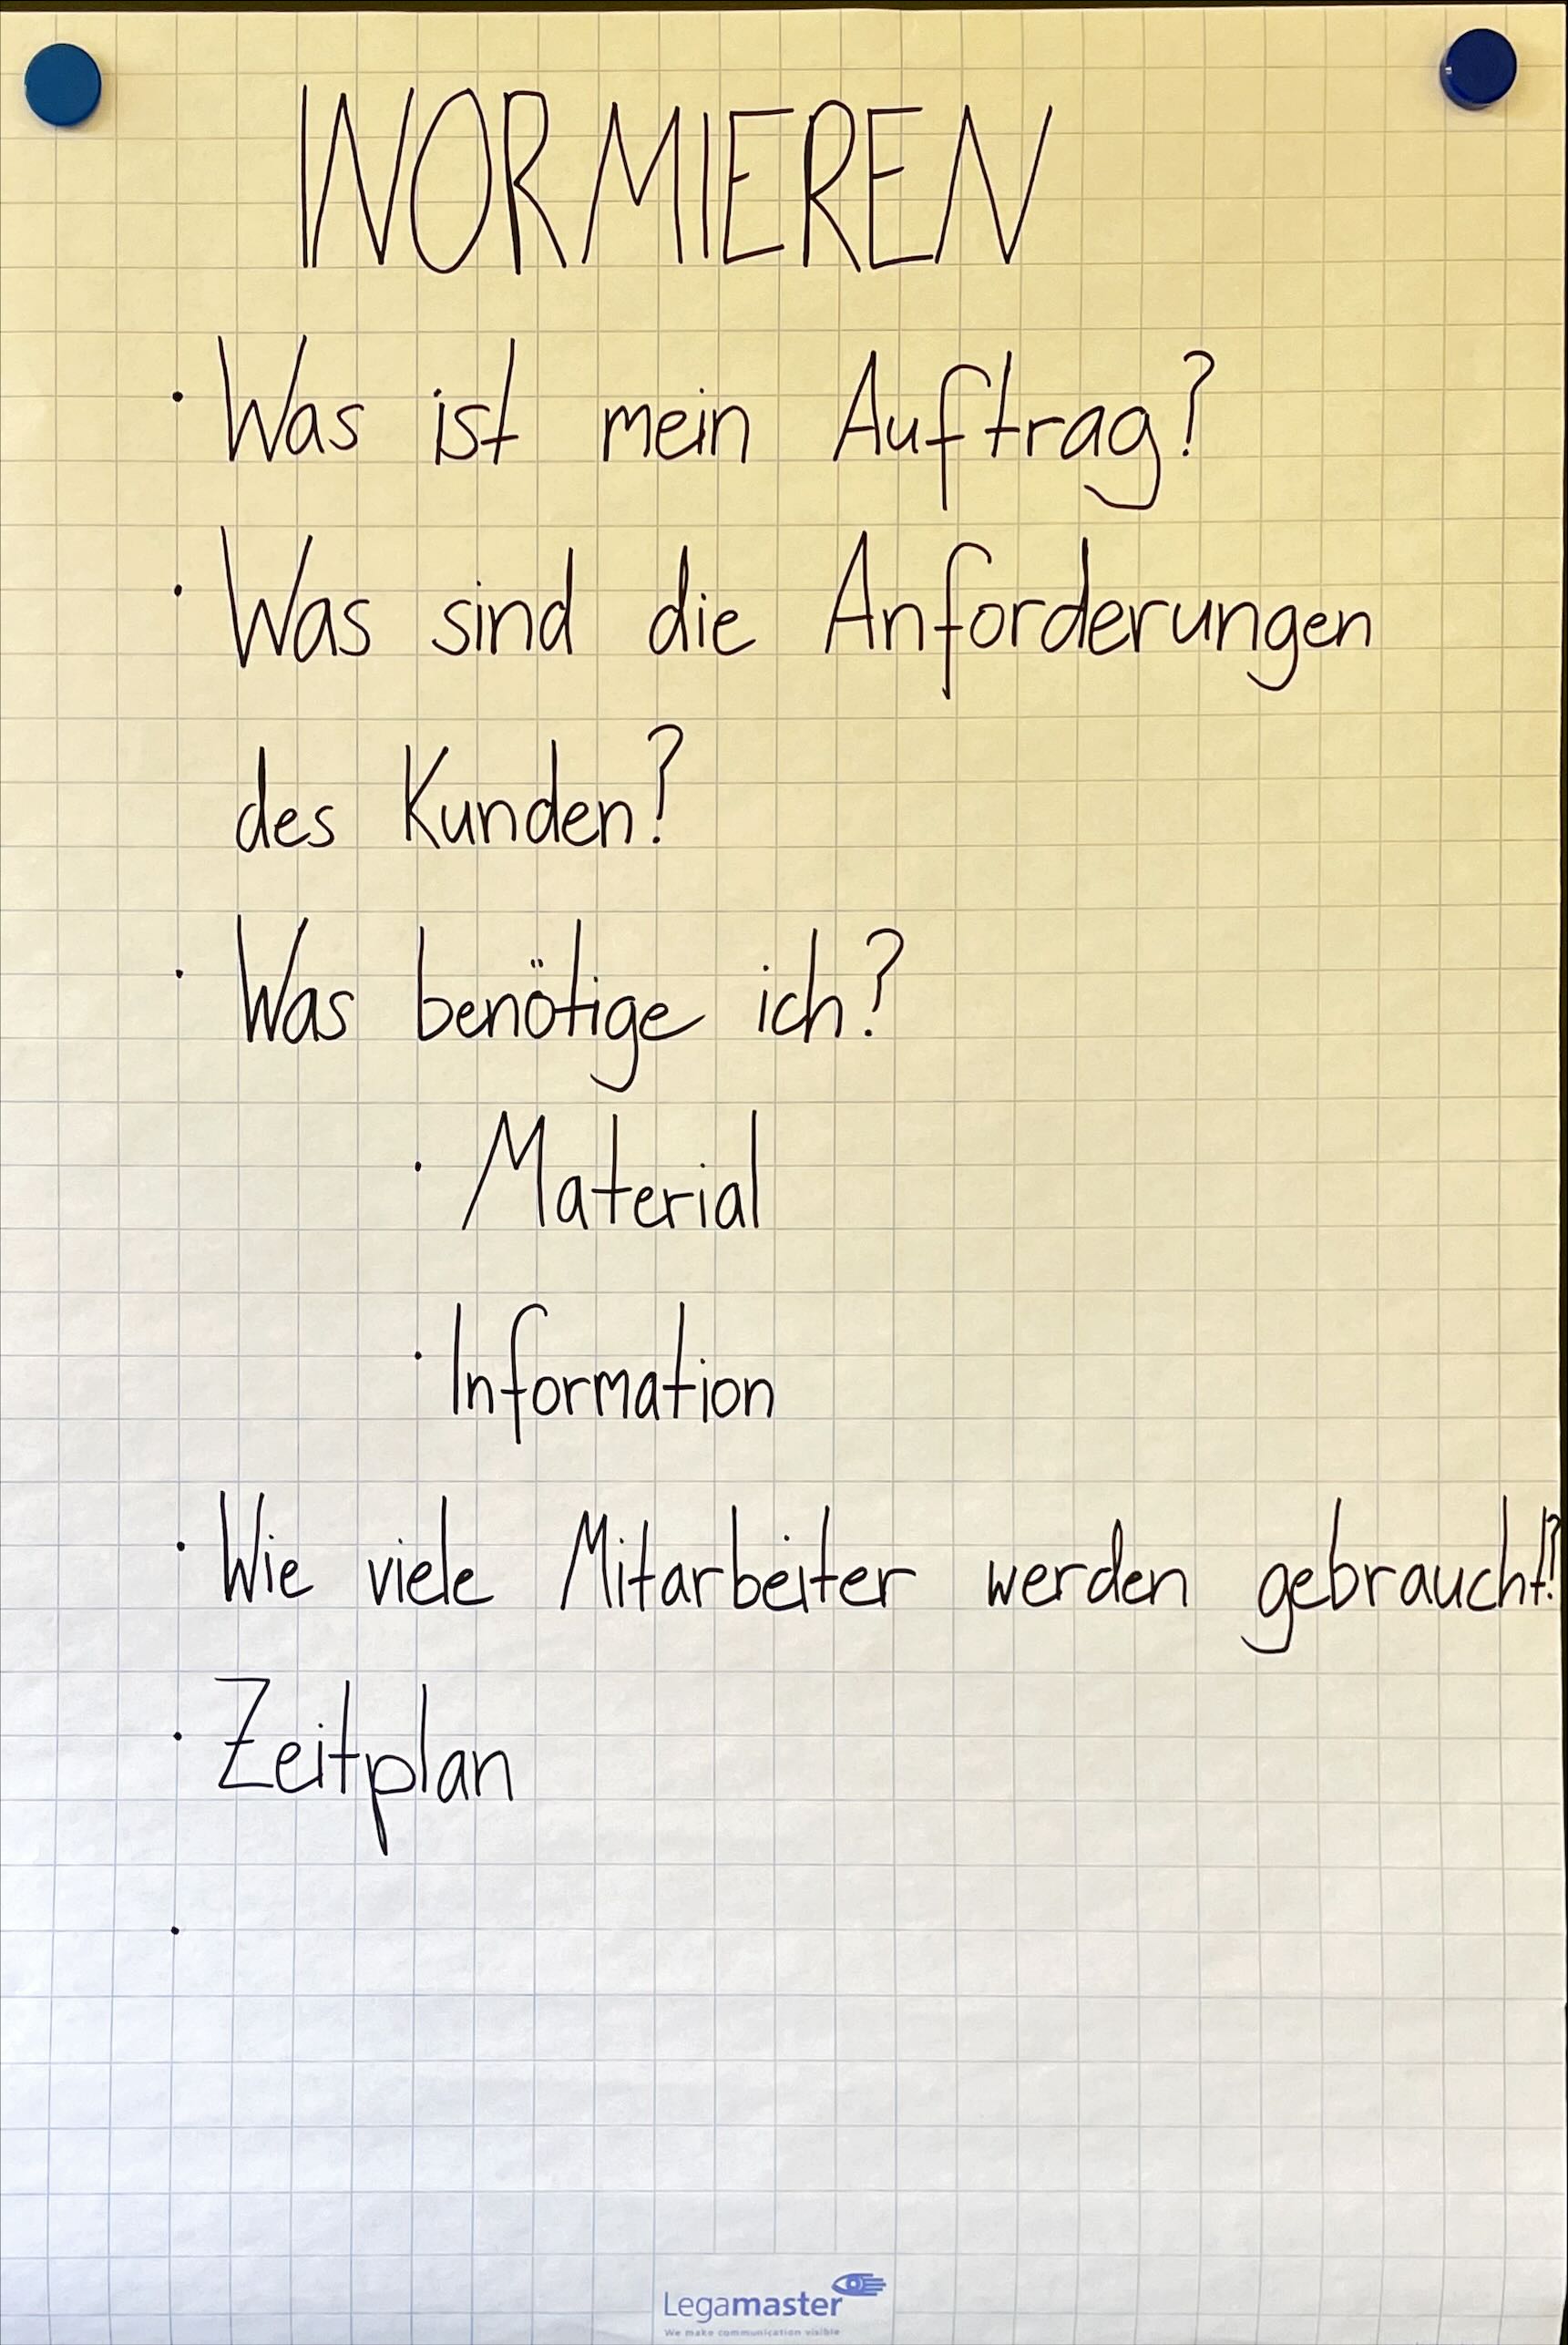 INORMIEREN
· Was ist mein Auftrag?
· Was sind die Anforderungen
des Kunden?
· Was benötige ich?
· Material
· Information
· Wie viele Mitarbeiter werden gebraucht?
· Zeitplan
·
Legamaster
We make communication visible